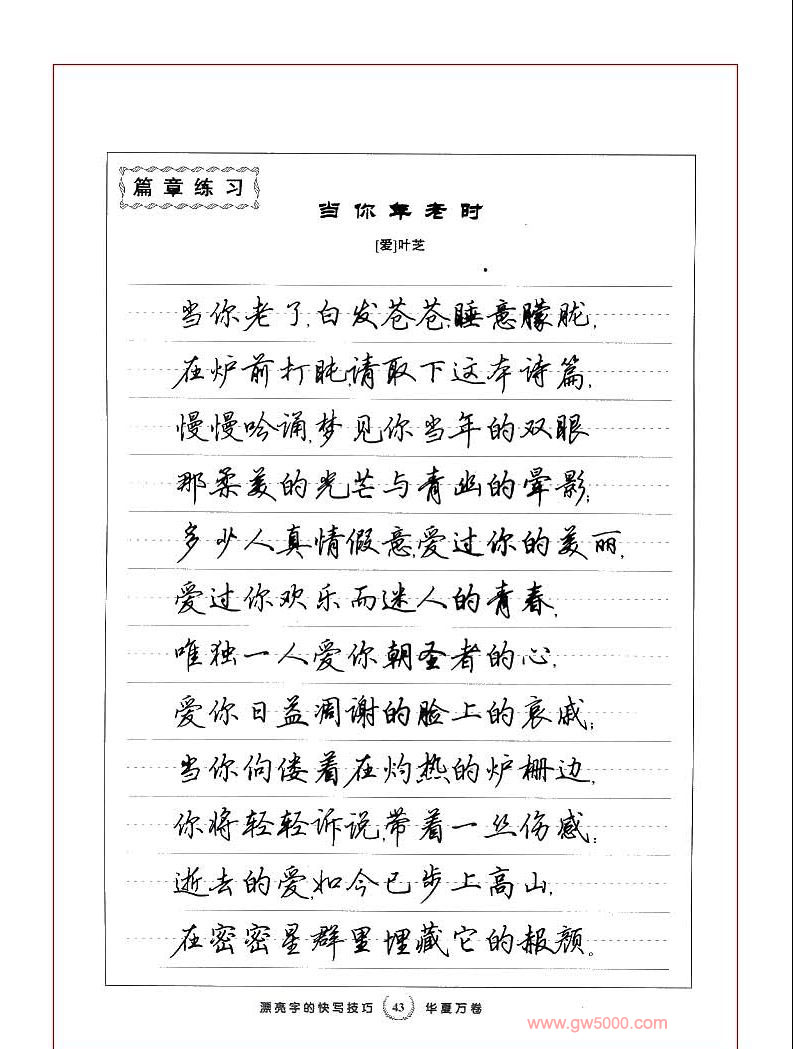 篇章练习
当你年老时
[爱]叶芝
当你老了,白发苍苍,睡意朦胧,
在炉前打盹,请取下这本诗篇,
慢慢吟诵,梦见你当年的双眼
那柔美的光芒与青幽的晕影;
多少人真情假意,爱过你的美丽,
爱过你欢乐而迷人的青春,
唯独一人爱你朝圣者的心,
爱你日益凋谢的脸上的哀戚;
当你佝偻着在灼热的炉栅边,
你将轻轻诉说,带着一丝伤感:
逝去的爱,如今已步上高山,
在密密星群里埋藏它的赧颜。
漂亮字的快写技巧 43 华夏万卷
www.gw5000.com